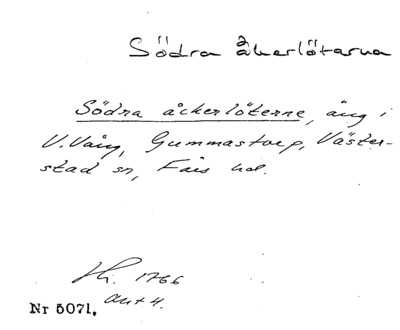 Södra åkerlötarna
Södra åckerlöterne, äng i
V. Vång, Gummastorp, Väster-
stad sn, Färs hd.
Hi. 1766
akt 4.
Nr 5071.